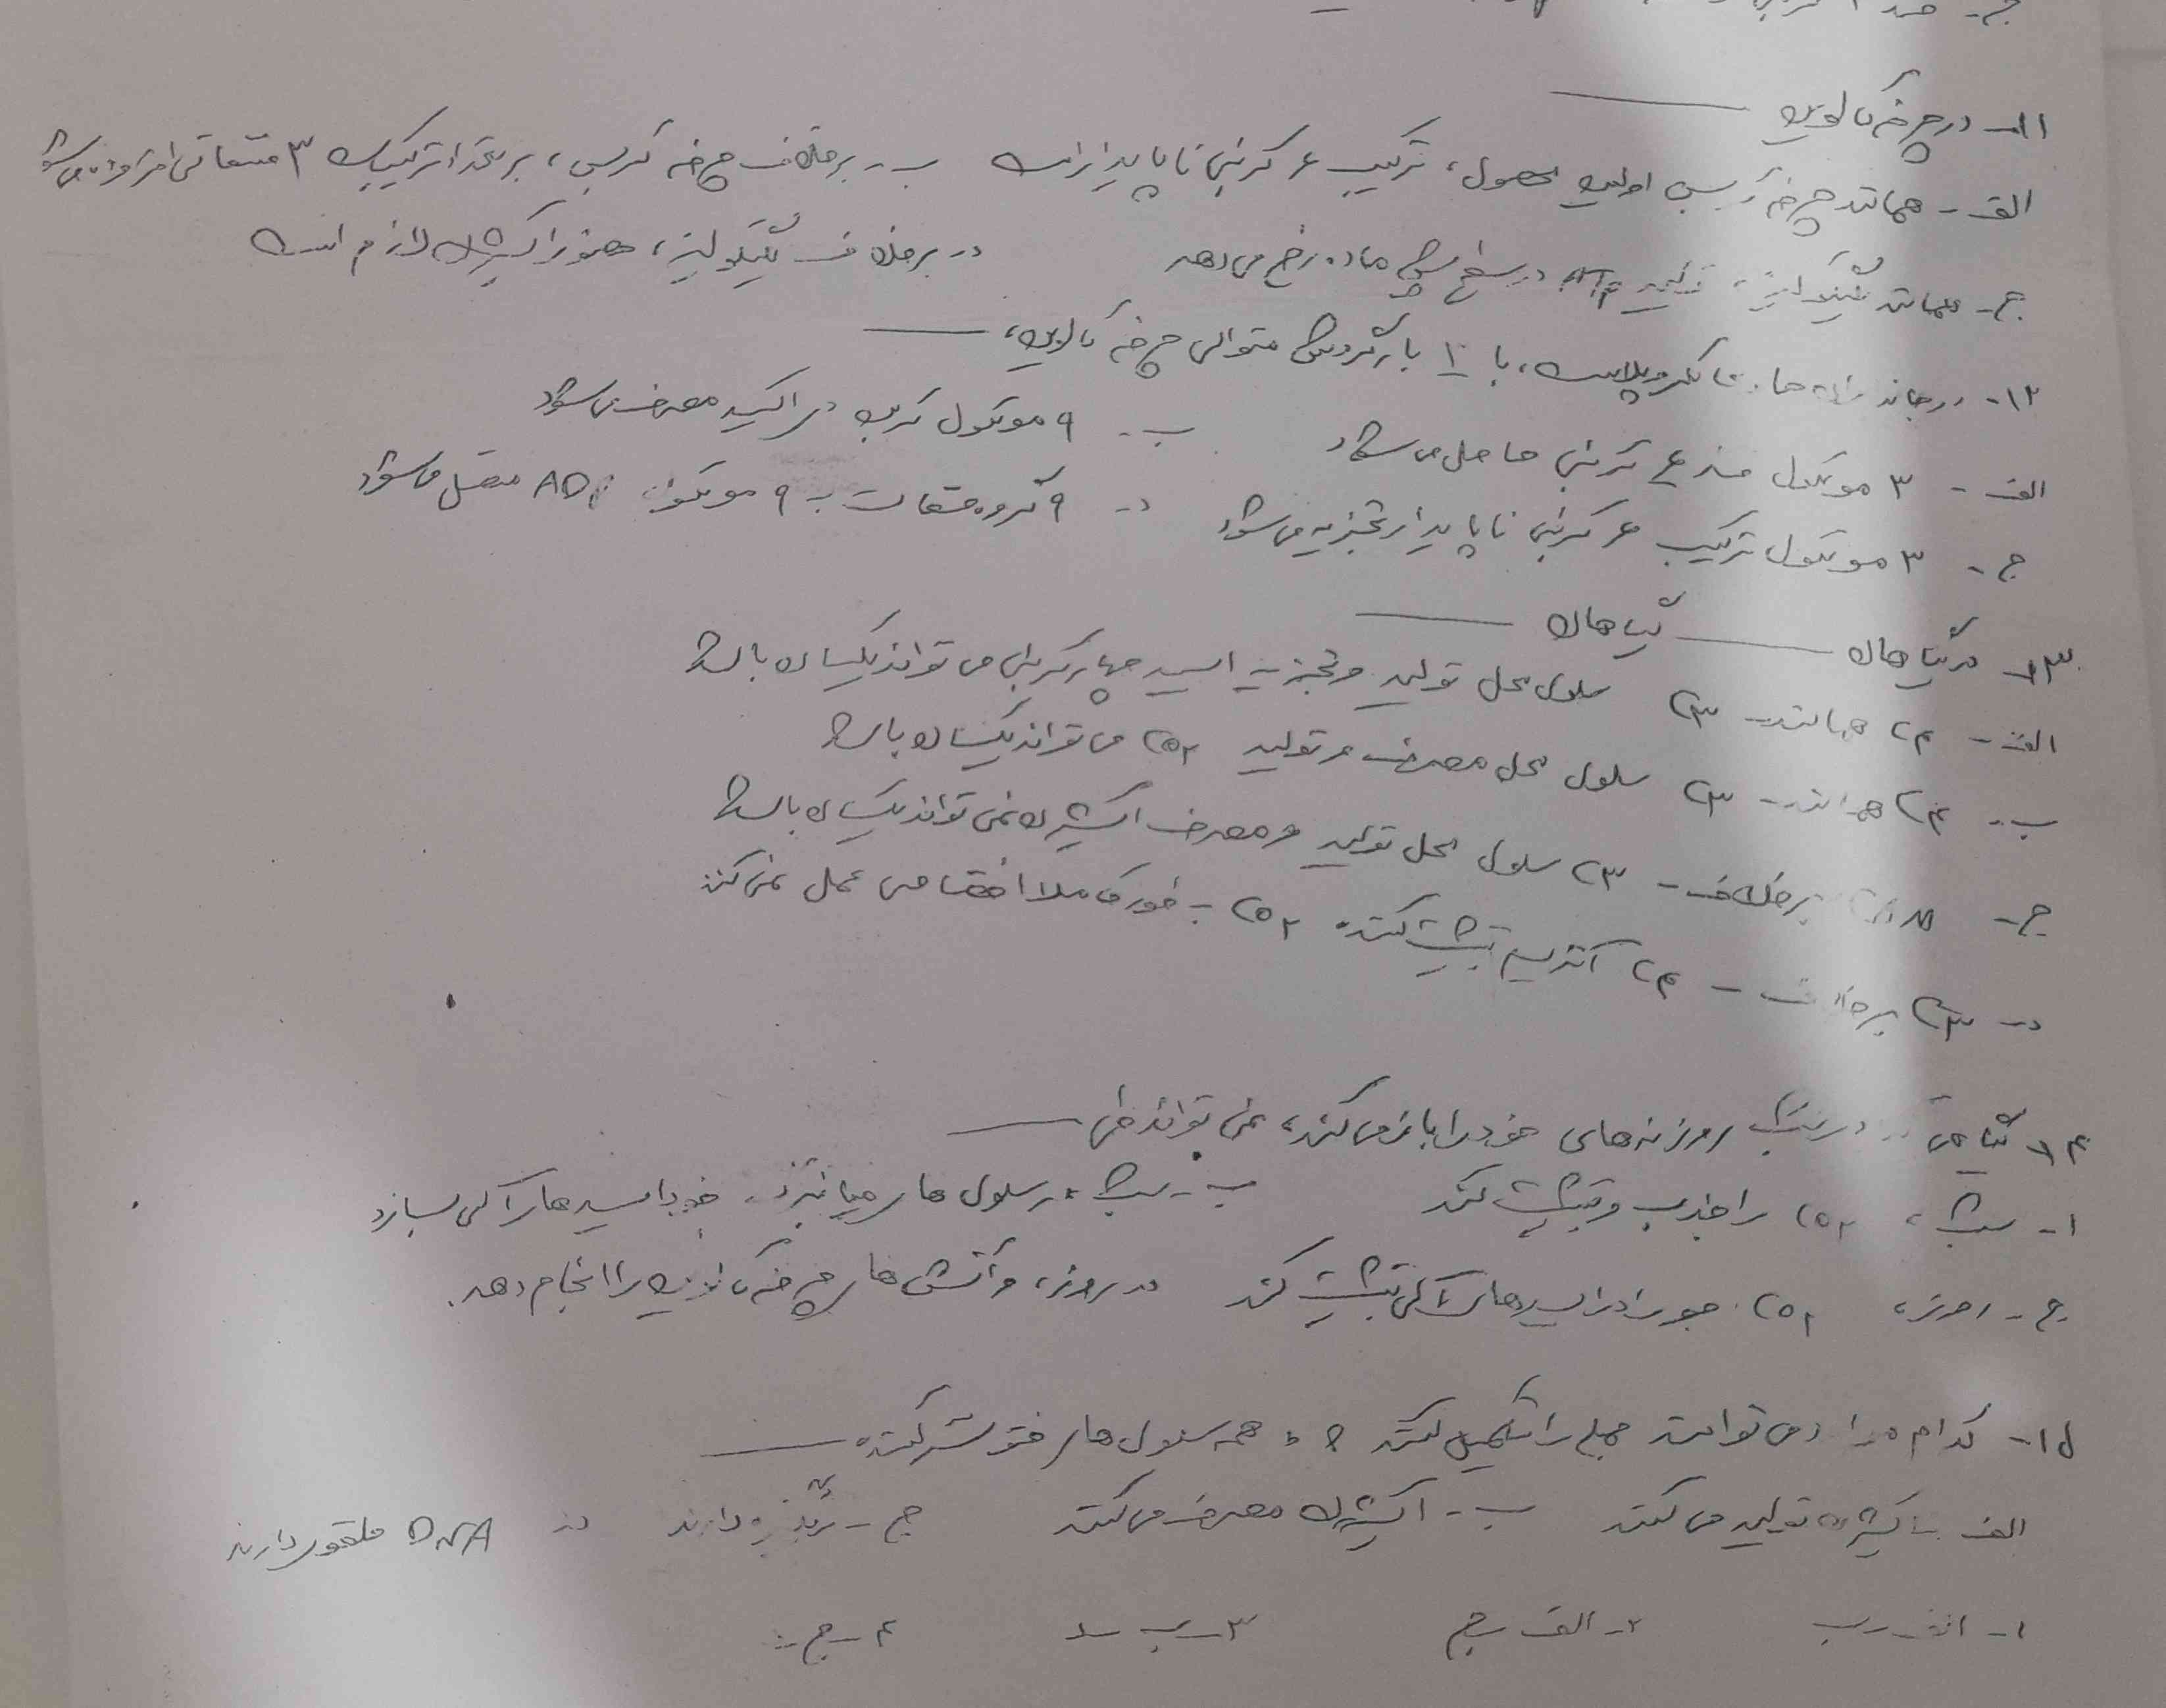 ۱۱- در چرخه کالوین
الف - همانند چرخه کربس اولین محصول، ترکیب ۶ کربنی ناپایدار است ب - برخلاف چرخه کربس، بر تعداد ترکیبات ۳ فسفاتی افزوده می‌شود
ج - همانند گلیکولیز، تولید ATP در سطح پیش ماده رخ می‌دهد د- برخلاف گلیکولیز، حضور اکسیژن لازم است
۱۲- در کلروپلاست، با ۱ بار گردش متوالی چرخه کالوین،
الف - ۳ مولکول قند ۶ کربنی حاصل می‌شود ب - ۹ مولکول کربن دی اکسید مصرف می‌شود
ج - ۳ مولکول ترکیب ۶ کربنی ناپایدار تجزیه می‌شود د - ۹ گروه فسفات به ۹ مولکول ADP متصل می‌شود
۱۳- در گیاهان گیاهان
الف - C۴ همانند - C۳ سلول محل تولید و تجزیه اسید چهار کربنی می‌تواند یکسان باشد
ب - C۴ همانند - C۳ سلول محل مصرف و تولید CO۲ می‌تواند یکسان باشد
ج - CAM برخلاف - C۳ سلول محل تولید و مصرف اکسیژن نمی‌تواند یکسان باشد
د - C۳ برخلاف - C۴ آنزیم تثبیت کننده CO۲ به طور کاملا اختصاصی عمل نمی‌کند
۱۴- گیاهی که در شب روزنه‌های خود را باز می‌کند، نمی‌تواند طی
۱- شب، CO۲ را جذب و تثبیت کند ب - شب، در سلول های میانبرگ خود اسیدهای آلی بسازد
ج - روز، CO۲ جو را در اسیدهای آلی تثبیت کند د- روز، واکنش های چرخه کالوین را انجام دهد.
۱۵- کدام موارد می‌توانند جمله را تکمیل کنند ؟ همه سلول های فتوسنتز کننده
الف - اکسیژن تولید می‌کنند ب - اکسیژن مصرف می‌کنند ج - رنگیزه دارند د - DNA حلقوی دارند
۱- الف - ب ۲- الف - ج ۳- ب - د ۴- ج -